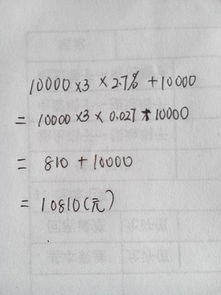 10000×3×2.7%+10000
=10000×3×0.027+10000
=810+10000
=10810(元)